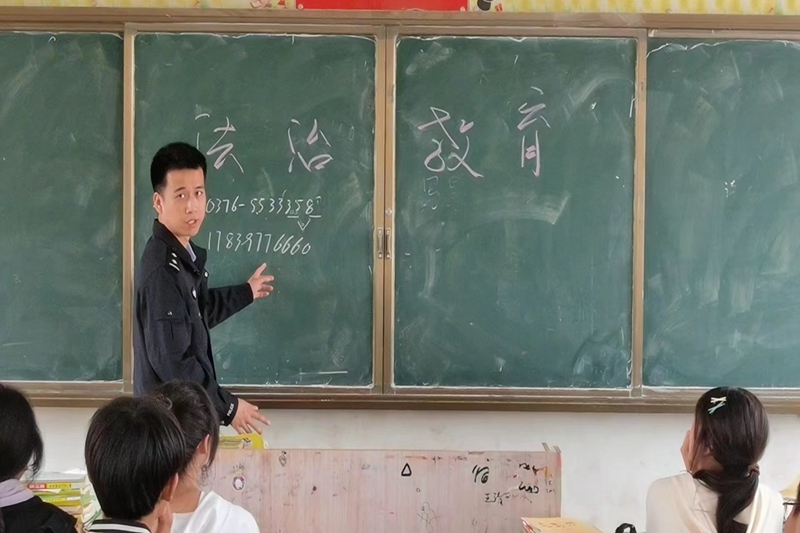 法治 教育
0376-5533358
17839776660